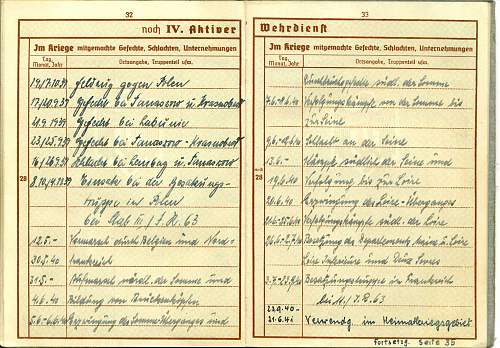 32
noch IV. Aktiver
Im Kriege mitgemachte Gefechte, Schlachten, Unternehmungen
Tag, Monat, Jahr
Ortsangabe, Truppenteil usw.
Feldzug gegen Polen
17./20.9.39 Gefecht bei Tanassowo u. Krasnobrod
20.9.1939 Gefecht bei
23./25.9.39 Gefecht bei Tanassowo - Krasnobrod
Schlacht bei u. Tanassowo
28
Einsatz bei der Besatzungs-
truppe in Polen
bei Stab III / J.R. 63
12.5.- Vormarsch durch Belgien und Nord-
30.5.40 frankreich
31.5.- Vormarsch nördl. der Somme und
4.6.40 Bildung von Brückenköpfen
5.6.-6.6.40 Erzwingung des Sommeüberganges und
33
Wehrdienst
Im Kriege mitgemachte Gefechte, Schlachten, Unternehmungen
Tag, Monat, Jahr
Ortsangabe, Truppenteil usw.
Durchbruchsgefechte südl. der Somme
Verfolgungskämpfe von der Somme bis
zur Seine
Schlacht an der Seine
Kämpfe südlich der Seine und
noch 28
19.6.40 Verfolgung bis zur Loire
20.6.40 Erzwingung des Loire-Überganges
Verfolgungskämpfe südl. der Loire
Besetzung des Departements Maine u. Loire
Loire Inferieure und Deux Sevres
Besatzungstruppe in Frankreich
bei 11./J.R. 63
22.9.40-
21.6.41 Verwendg. im Heimatkriegsgebiet
Fortsetzg. Seite 35